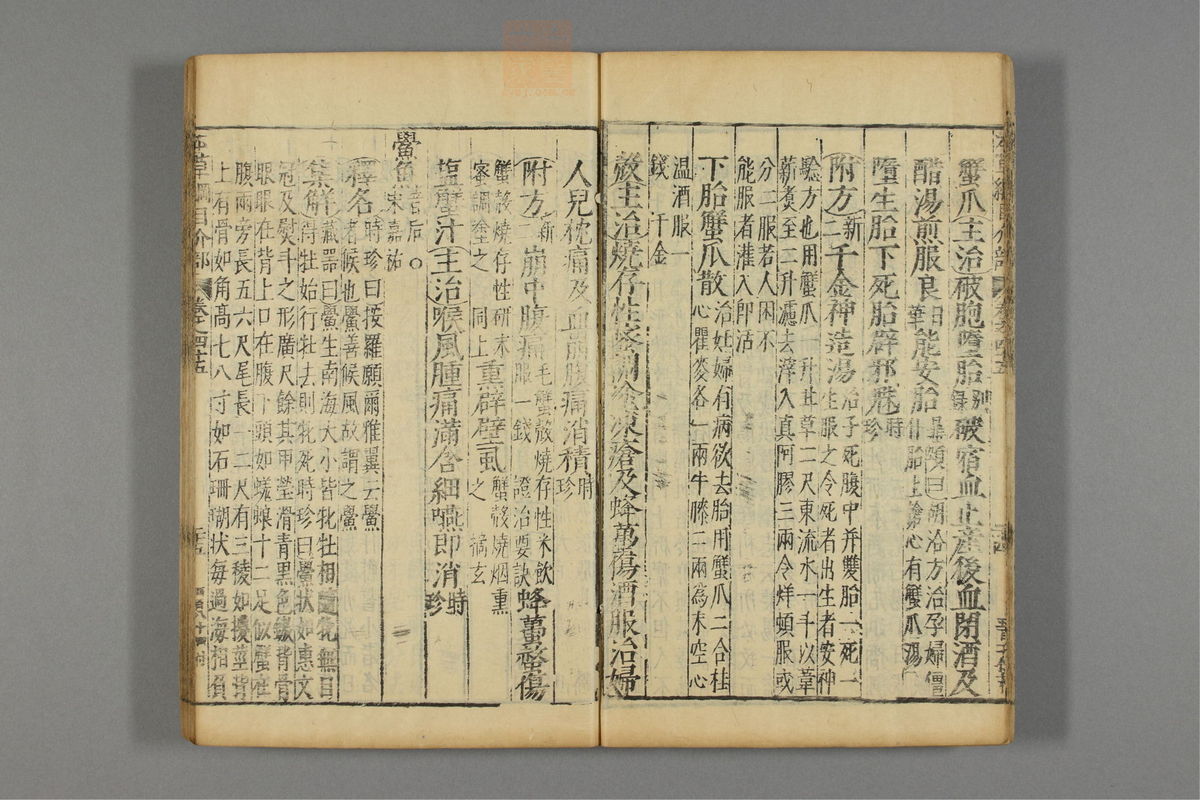 蟹爪主治破胞墮胎別錄破宿血止產後血閉酒及
醋湯煎服良日華能安胎鼎曰胡洽方治孕婦僵仆胎上搶心有蟹爪湯
墮生胎下死胎辟邪魅時珍
附方新二千金神造湯治子死腹中并雙胎一死一生服之令死者出生者安神
驗方也用蟹爪一升甘草二尺東流水一斗以葦
薪煮至二升濾去滓入真阿膠三兩令烊頓服或
分二服若人困不
能服者灌入即活
下胎蟹爪散治妊婦有病欲去胎用蟹爪二合桂心瞿麥各一兩牛膝二兩為末空心
溫酒服一
錢 千金
殼主治燒存性蜜調塗凍瘡及蜂蠆傷酒服治婦
人兒枕痛及血崩腹痛消積時珍
附方新二崩中腹痛毛蟹殼燒存性米飲服一錢 證治要訣蜂蠆螫傷
蟹殼燒存性研末
蜜調塗之 同上熏辟壁虱蟹殼燒烟熏之 摘玄
鹽蟹汁主治喉風腫痛滿含細嚥即消時珍
鱟魚宋嘉祐
釋名時珍曰按羅願爾雅翼云鱟者候也鱟善候風故謂之鱟
集解藏器曰鱟生南海大小皆牝牡相隨牝無目得牡始行牡去則牝死時珍曰鱟狀如惠文
冠及熨斗之形廣尺餘其甲瑩滑青黑色鏊背骨
眼眼在背上口在腹下頭如蜣蜋十二足似蟹在
腹兩旁長五六尺尾長一二尺有三稜如椶莖背
上有骨如角高七八寸如石珊瑚狀每過海相負
本草綱目介部 卷之四十五